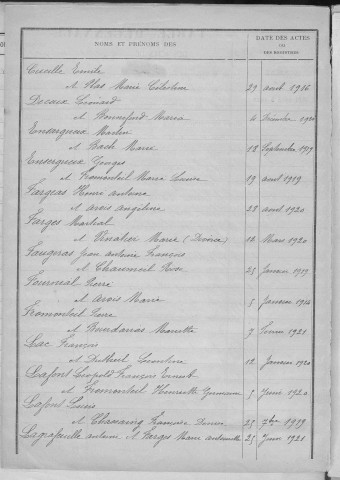 NOMS ET PRÉNOMS DES
DATE DES ACTES
OU
DES REGISTRES
Cueille Emile
et Mas Marie Célestine 29 avril 1916
Decaux Léonard
et Bonnefond Maria 4 Décembre 1920
Ensergueix Martin
et Bach Marie 12 Septembre 1919
Ensergueix
et Fromonteil Maria 19 avril 1919
Fargeas Henri antoine
et arvis angelina 28 avril 1920
Farges Martial
et Vinatier Marie (Divorce) 12 Mars 1920
Faugeras jean antoine François
et Chaumeil Rose 25 Janvier 1919
Fourneal Pierre
et arvis Marie 5 Janvier
Fromonteil Pierre
et Mariette 9 1921
Lac François
et 12 Janvier 1920
Lafont Léopold François Ernest
et Fromonteil Henriette Germaine 5 1920
Lafont Louis
et Chassaing 25 7bre 1919
Lagrafeuille antoine et Farges Marie antoinette 25 Juin 1921